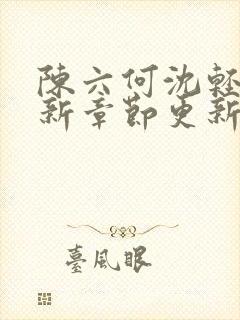 陳六何沈輕
新章節更新
臺風眼